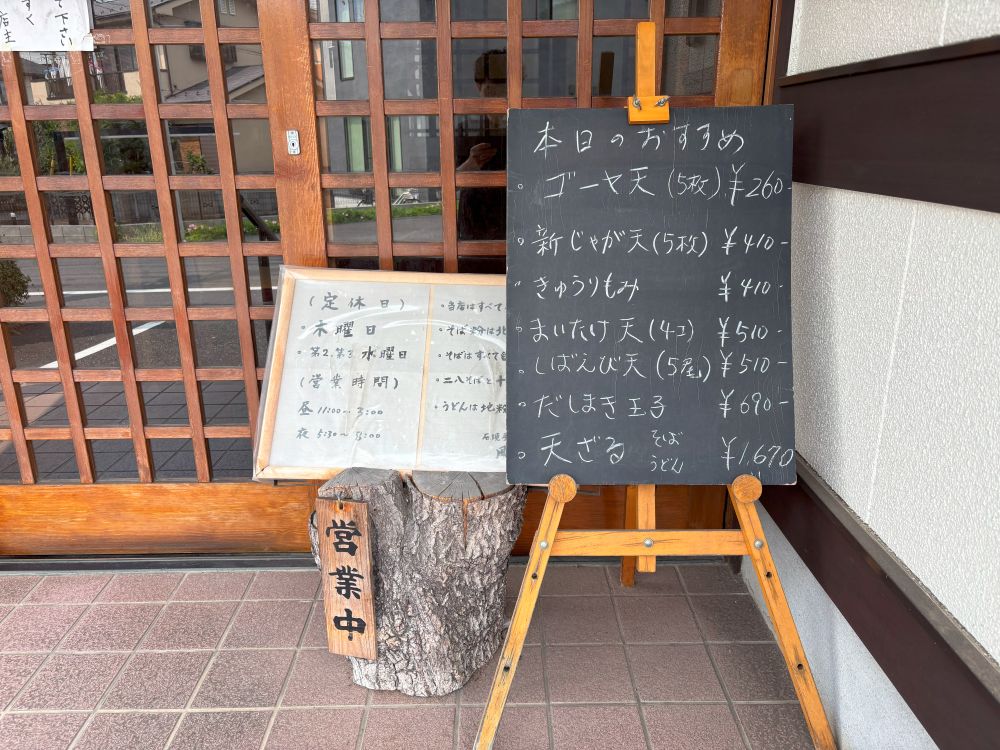 て下さい
すく
店主
本日のおすすめ
。ゴーヤ天(5枚) ¥260-
。新じゃが天(5枚) ¥410-
。きゅうりもみ ¥410-
。まいたけ天(4コ) ¥510-
。しばえび天(5尾) ¥510-
。だしまき玉子 ¥690-
。天ざる そば うどん ¥1,670
(定休日)
・木曜日
・第2.第3.水曜日
(営業時間)
昼 11:00~3:00
夜 5:30~
・当店はすべて
・そば粉は北
・そばはすべて
・二八そばと十
・うどんは地粉
営業中